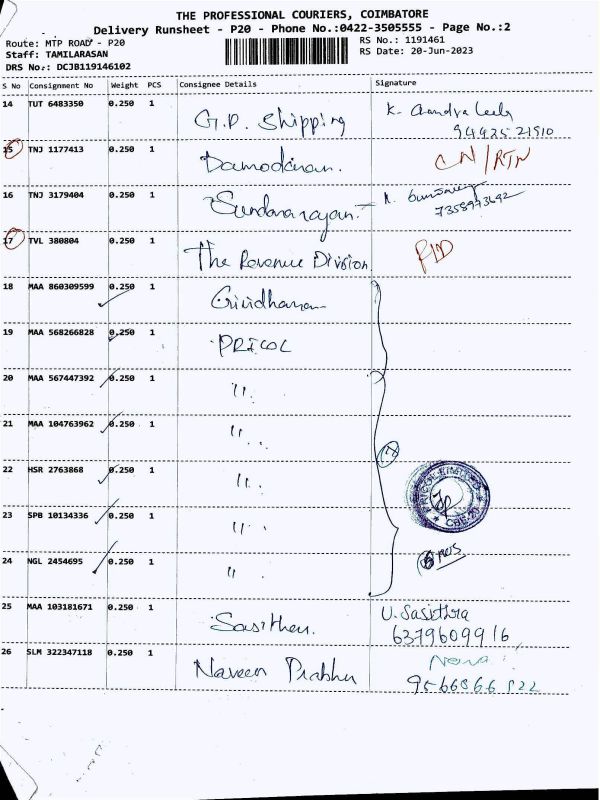 THE PROFESSIONAL COURIERS, COIMBATORE
Delivery Runsheet - P20 - Phone No.:0422-3505555 - Page No.:2
Route: MTP ROAD - P20
RS No.: 1191461
Staff: TAMILARASAN
RS Date: 20-Jun-2023
DRS No.: DCJB119146102
S No Consignment No Weight PCS Consignee Details Signature
14 TUT 6483350 0.250 1 G.P. Shipping
15 TNJ 1177413 0.250 1 CN/RTN
16 TNJ 3179404 0.250 1
17 TVL 380804 0.250 1 The Revenue Division
18 MAA 860309599 0.250 1
19 MAA 568266828 0.250 1 PRICOL
20 MAA 567447392 0.250 1 "
21 MAA 104763962 0.250 1 "
22 HSR 2763868 0.250 1 "
23 SPB 10134336 0.250 1 "
24 NGL 2454695 0.250 1 "
25 MAA 103181671 0.250 1 U. Sasithra
6379609916
26 SLM 322347118 0.250 1 Naveen Prabhu